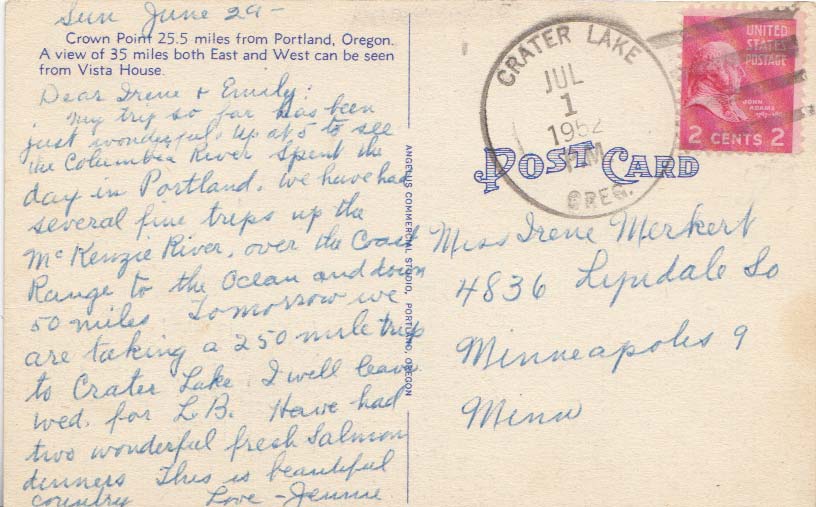 Sun June 29 -
Crown Point 25.5 miles from Portland, Oregon.
A view of 35 miles both East and West can be seen
from Vista House.
Dear Irene & Emily:
My trip so far has been
just wonderful. Up at 5 to see
the Columbia River Spent the
day in Portland. We have had
several fine trips up the
McKenzie River, over the Coast
Range to the Ocean and down
50 miles. Tomorrow we
are taking a 250 mile trip
to Crater Lake. I will leave
Wed. for L.B. Have had
two wonderful fresh Salmon
dinners This is beautiful
country Love - Jennie
ANGELUS COMMERCIAL STUDIO, PORTLAND, OREGON
CRATER LAKE
JUL
1
1952
PM
OREG.
UNITED
STATES
POSTAGE
JOHN
ADAMS
2 CENTS 2
POST CARD
Miss Irene Merkert
4836 Lyndale So
Minneapolis 9
Minn